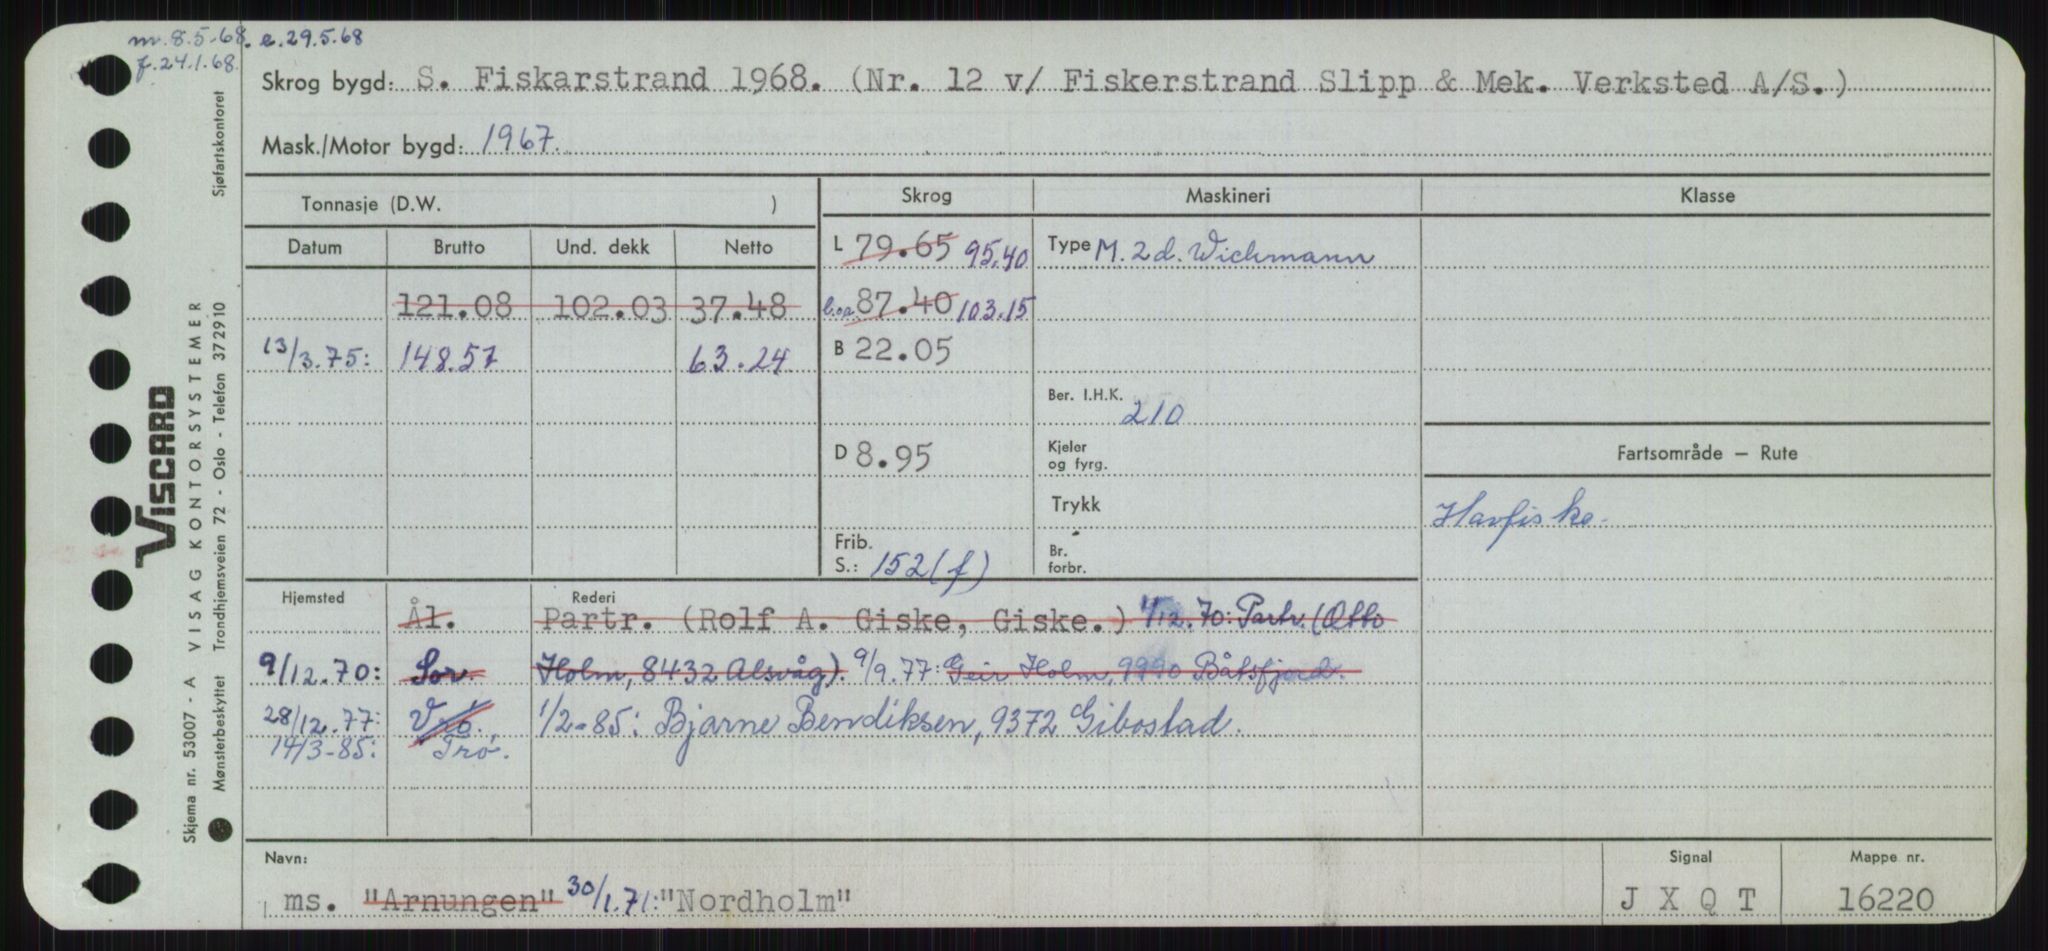 m. 8.5-68. e. 29.5.68
f. 24.1.68.
Skrog bygd: S. Fiskarstrand 1968. (Nr. 12 v/ Fiskerstrand Slipp & Mek. Verksted A/S.)
Mask./Motor bygd: 1967.
Tonnasje (D.W. )
Skrog
Maskineri
Klasse
Datum Brutto Und. dekk Netto
L 79.65 95.40
Type M. 2 d. Wichmann
121.08 102.03 37.48
l.o.a. 87.40 103.15
13/3.75: 148.57 63.24
B 22.05
Ber. I.H.K. 210
D 8.95
Kjeler
og fyrg.
Fartsområde — Rute
Trykk
Havfiske.
Frib.
S.: 152 (f)
Br.
forbr.
Hjemsted
Rederi
Ål. Partr. (Rolf A. Giske, Giske.) 1/12.70: Partr. (Otto
9/12.70: Sor. Holm, 8432 Alsvåg). 9/9.77: Geir Holm, 9990 Båtsfjord.
28/12.77: Vaö. 1/2-85: Bjarne Bendiksen, 9372 Gibostad.
14/3-85: Trø.
Navn:
Signal
Mappe nr.
ms. "Arnungen" 30/1.71: "Nordholm"
J X Q T
16220
Sjøfartskontoret
VISCARD
VISAG KONTORSYSTEMER
Trondhjemsveien 72 - Oslo - Telefon 372910
Skjema nr. 53007 - A
Mønsterbeskyttet